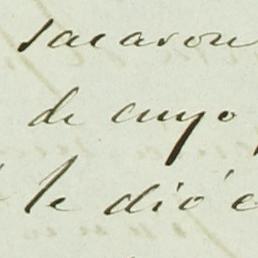 sacaron
de cuyo
le dió